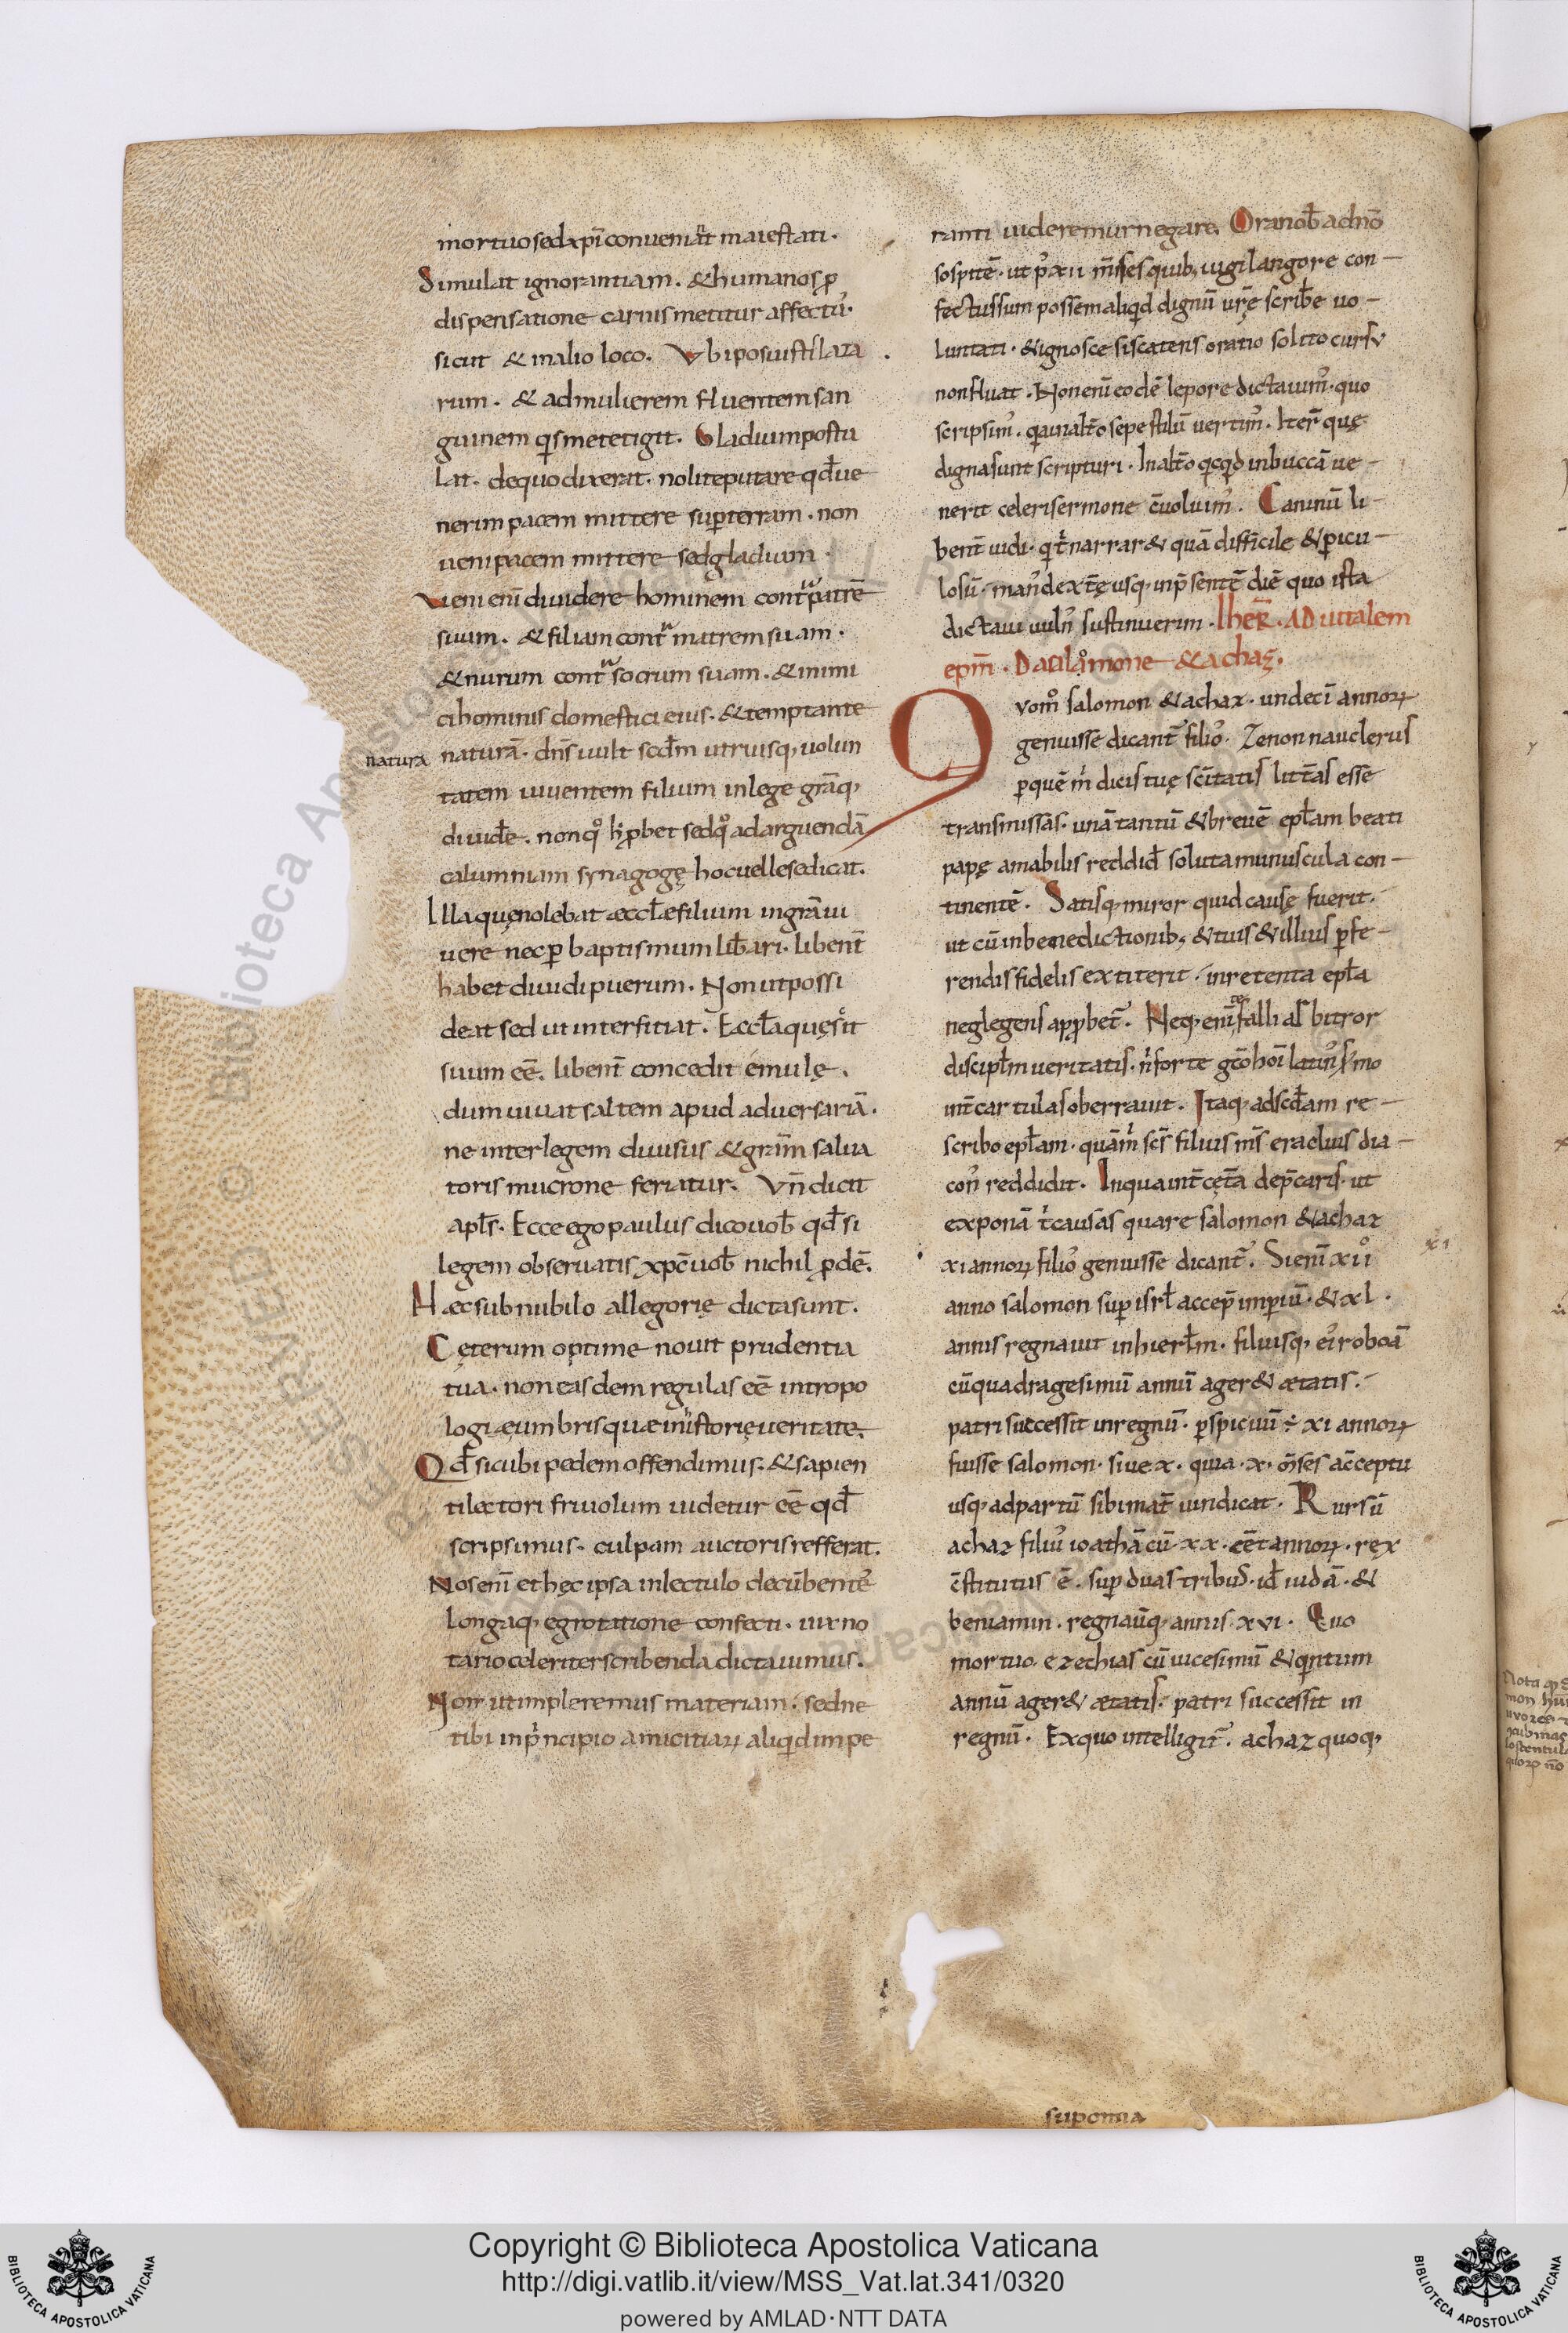 mortuo sed xpi conueniat maiestati.
Simulat ignorantiam. & humanos p
dispensatione carnis metitur affectus.
sicut & in alio loco. Vbi posuistis laza
rum. & ad mulierem fluentem san
guinem qs me tetigit. Gladium postu
lat. de quo dixerat. nolite putare qđ ue
nerim pacem mittere sup terram. non
ueni pacem mittere sed gladium.
Veni eni diuidere hominem contra patrē
suum. & filiam contra matrem suam.
& nurum contra socrum suam. & inimi
ci hominis domestici eius. & temptante
natura
naturā. dns uult scdm utriusq; uolun
tatem uiuentem filium in lege grāq;
diuidē. non qo h pbet sed qo ad arguendā
calumniam synagogę hoc uelle se dicat.
Illa quę nolebat æccłæ filium in grā ui
uere nec p baptismum libari. libent
habet diuidi puerum. Non ut possi
deat sed ut interfitiat. Eccła quę scit
suum eē. libent concedit emulę.
dum uiuat saltem apud aduersariā.
ne inter legem diuisus & grām salua
toris mucrone feriatur. Vn dicit
apls. Ecce ego paulus dico uob qđ si
legem obseruatis xpc uob nichil pdē.
Hæc sub nubilo allegorię dicta sunt.
Cęterum optime nouit prudentia
tua. non easdem regulas eē in tropo
logiæ umbris quæ in istorię ueritate.
Qđ sicubi pedem offendimus. & sapien
ti lectori friuolum uidetur eē qđ
scripsimus. culpam auctoris refferat.
Nos eni et hęc ipsa in lectulo decūbente
longaq; egrotatione confecti. uix no
tario celeriter scribenda dictauimus.
Non ut impleremus materiam. sed ne
tibi in principio amicitiarum aliqid impe
ranti uideremur negare. Ora nob a dno
sospite. ut p xii mses quib; iugi langore con-
fectus sum possem aliqd dignū urę scribe uo-
luntati. & ignosce si scatens oratio solito cursu
non fluat. Non eni eodē lepore dictauim. quo
scripsim. qa in alto sepe stilū uertim. Iter quę
digna sunt scripturi. In alto qcqd in buccā ue-
nerit celeri sermone cuoluim. Caninū li-
bent uidi. qt narrar& quā difficile & picu-
losū. man dextę usq; in psentē diē quo ista
dictaui uuln sustinuerim. Iher. AD uitalem
epm. Da silomone & achaz.
Quom salomon & achaz. undeci annorum
genuisse dicant filios. Zenon nauclerus
p quē m dicis tuę scitatis litt̄as esse
transmissas. unā tantū & breuē epłam beati
papę amabilis reddid solita munuscula con-
tinentē. Satisq; miror quid causę fuerit.
ut cū in benedictionib; & tuis & illius pfe-
rendis fidelis extiterit. in retenta epła
neglegens appbet. Neq; eni te falli al bitror
discipłm ueritatis. n forte gco hoi latin smo
int cartulas oberrauit. Itaq; ad scđam re-
scribo epłam. quā m scs filius ms eraclius dia-
con reddidit. In qua int cęta depcaris. ut
exponā t causas quare salomon & achaz
xi annorum filio genuisse dicant. Si eni xii
xi
anno salomon sup isrl accep impiū. & xl.
annis regnauit in hierłm. filiusq; ei roboā
cū quadragesimū annū ager& ætatis.
patri successit in regnū. pspicuū ÷ xi annorum
fuisse salomon. siue x. quia. x. mses acceptu
usq; ad partū sibi mat uindicat. Rursū
achaz filius ioathā cū. xx. eet annorum. rex
cstitutus ē. sup duas tribus. id iudā. &
beniamin. regnauq; annis. xvi. Quo
mortuo. ezechias cū uicesimū & qintum
annū ager& ætatis. patri successit in
regnū. Ex quo intelligit. achaz quoq;
suponna
Copyright © Biblioteca Apostolica Vaticana
http://digi.vatlib.it/view/MSS_Vat.lat.341/0320
powered by AMLAD·NTT DATA
BIBLIOTECA APOSTOLICA VATICANA
BIBLIOTECA APOSTOLICA VATICANA